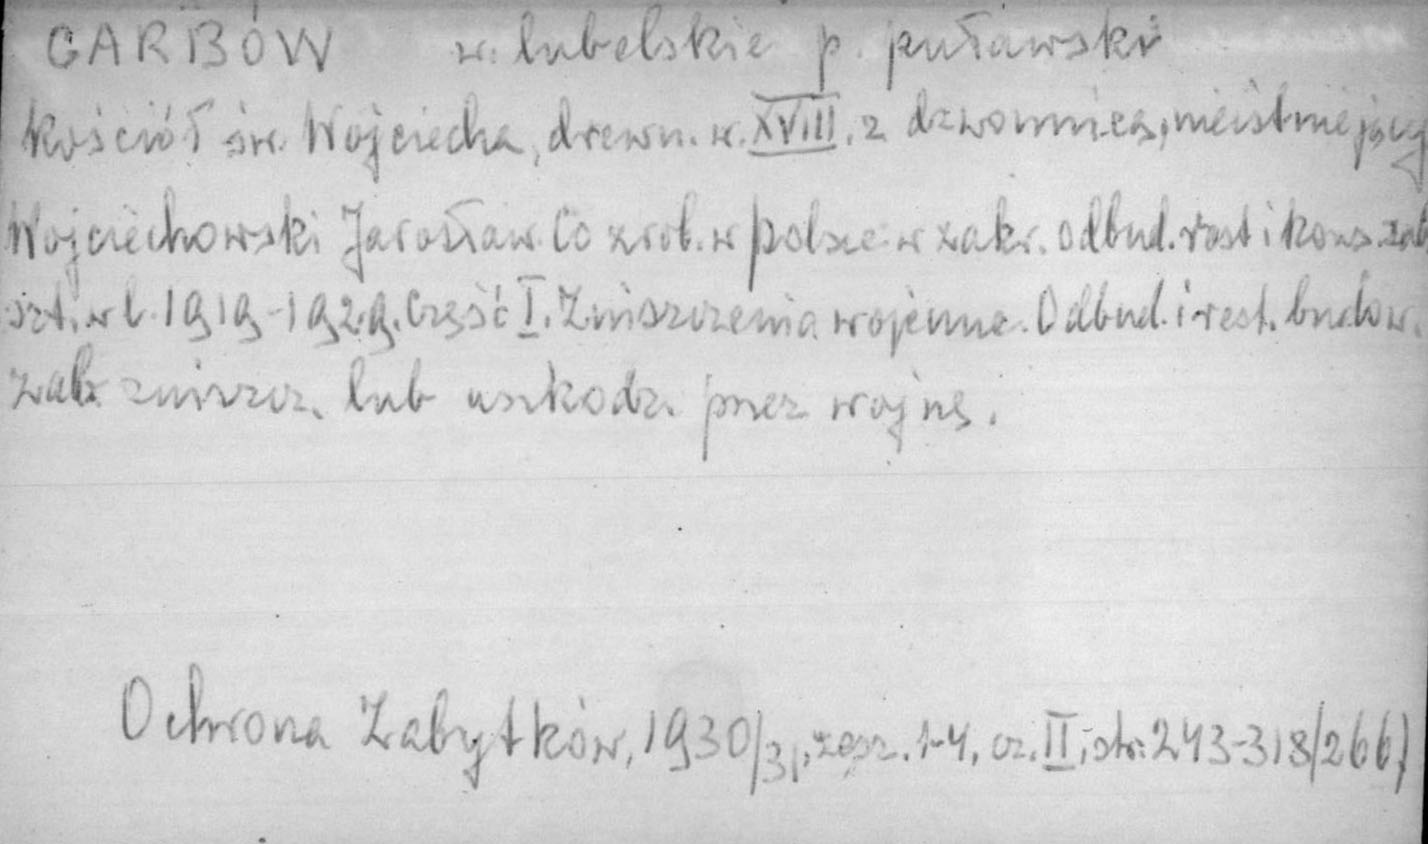 GARBÓW w. lubelskie p. puławski
Kościół św. Wojciecha, drewn. w. XVIII. z dzwonnicą, nieistniejący
Wojciechowski Jarosław. Co zrob. w Polsce w zakr. odbud. rest i kons. zab
szt. w l. 1919-1929. Część I. Zniszczenia wojenne. Odbud. i rest. budow.
zab. zniszcz. lub uszkodz. przez wojnę.
Ochrona Zabytków, 1930/31, zesz. 1-4, cz. II, str: 243-318/266/